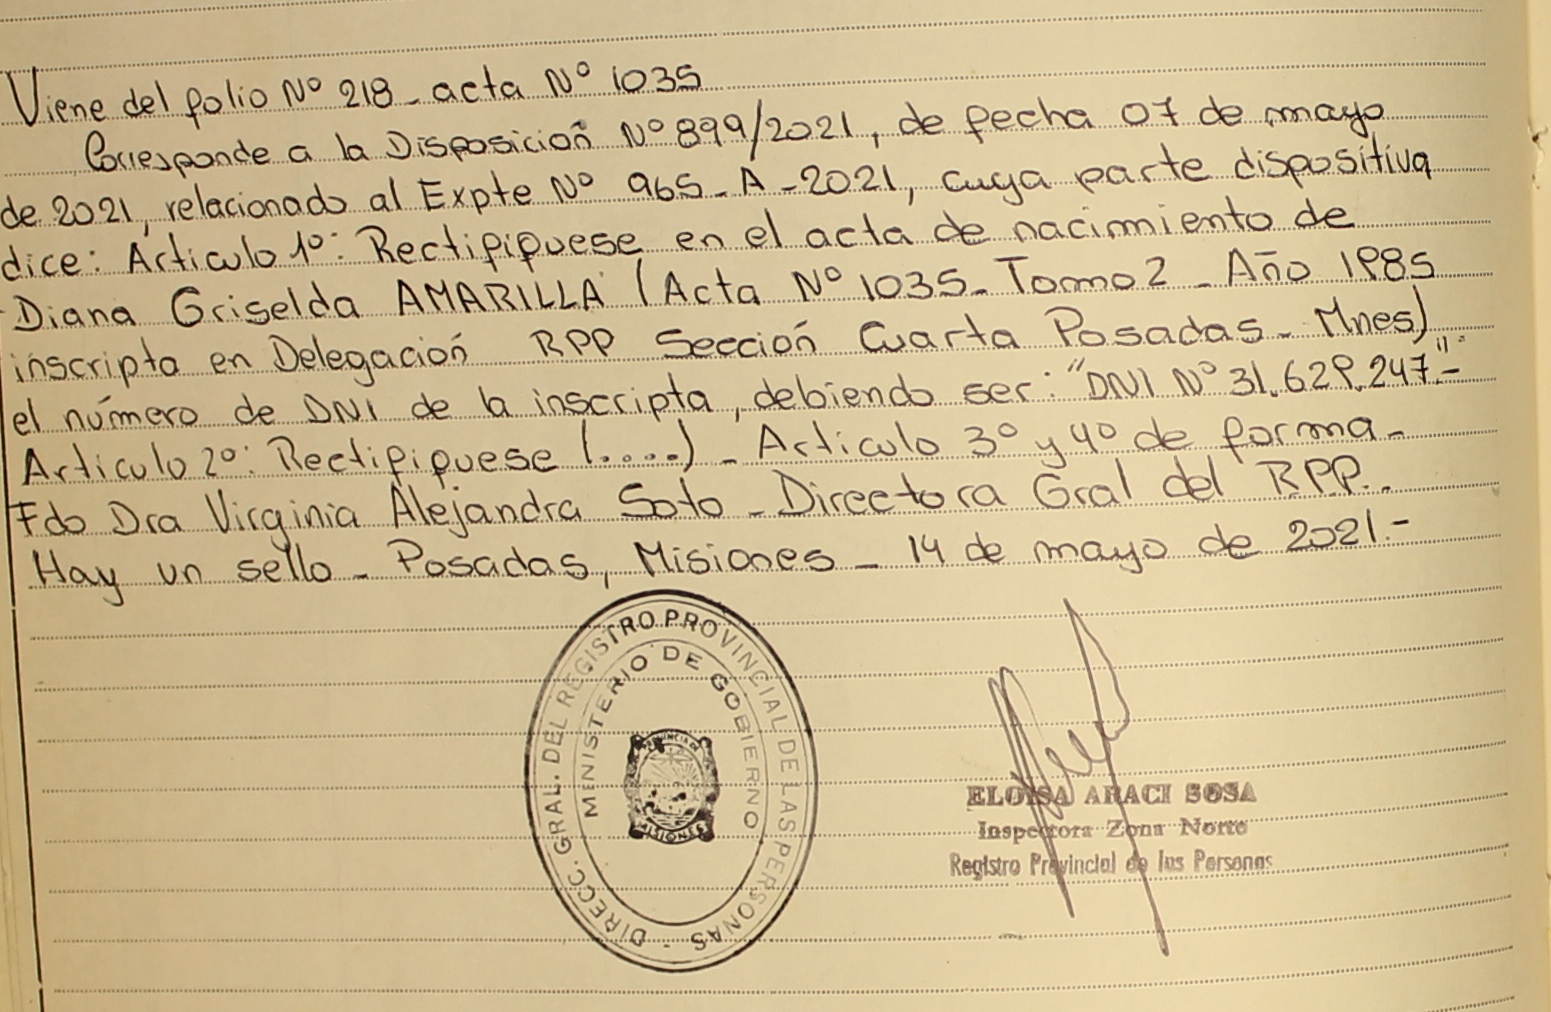 Viene del folio Nº 218 - acta Nº 1035
Corresponde a la Disposición Nº 899/2021, de fecha 07 de mayo
de 2021, relacionado al Expte Nº 965 - A - 2021, cuya parte dispositiva
dice: Articulo 1º: Rectifiquese en el acta de nacimiento de
Diana Griselda AMARILLA (Acta Nº 1035 - Tomo 2 - Año 1985
inscripta en Delegación RPP Sección Cuarta Posadas - Mnes)
el número de DNI de la inscripta, debiendo ser: "DNI Nº 31.629.247".-
Articulo 2º: Rectifiquese (.....) - Articulo 3º y 4º de forma -
Fdo Dra Virginia Alejandra Soto - Directora Gral del R.P.P..
Hay un sello - Posadas, Misiones - 14 de mayo de 2021.-
DIRECC. GRAL. DEL REGISTRO PROVINCIAL DE LAS PERSONAS -
MINISTERIO DE GOBIERNO
PROVINCIA DE
MISIONES
ELOISA ARACI SOSA
Inspectora Zona Norte
Registro Provincial de las Personas